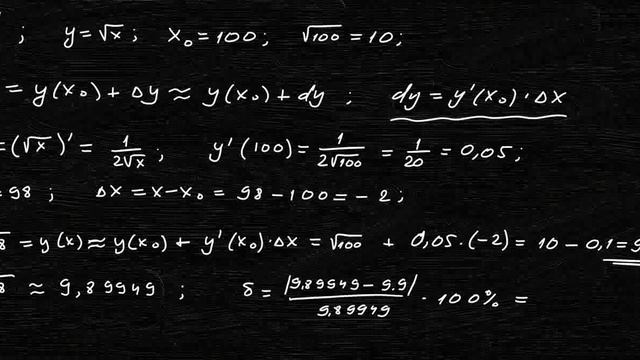 ; y = √x ; x₀ = 100 ; √100 = 10 ;
= y(x₀) + Δy ≈ y(x₀) + dy ; dy = y'(x₀) · Δx
= (√x)' = 1/(2√x) ; y'(100) = 1/(2√100) = 1/20 = 0,05 ;
= 98 ; Δx = x - x₀ = 98 - 100 = - 2 ;
8 = y(x) ≈ y(x₀) + y'(x₀) · Δx = √100 + 0,05 · (-2) = 10 - 0,1 = 9
8 ≈ 9,89949 ; δ = |9,89949 - 9.9| / 9,89949 · 100% =